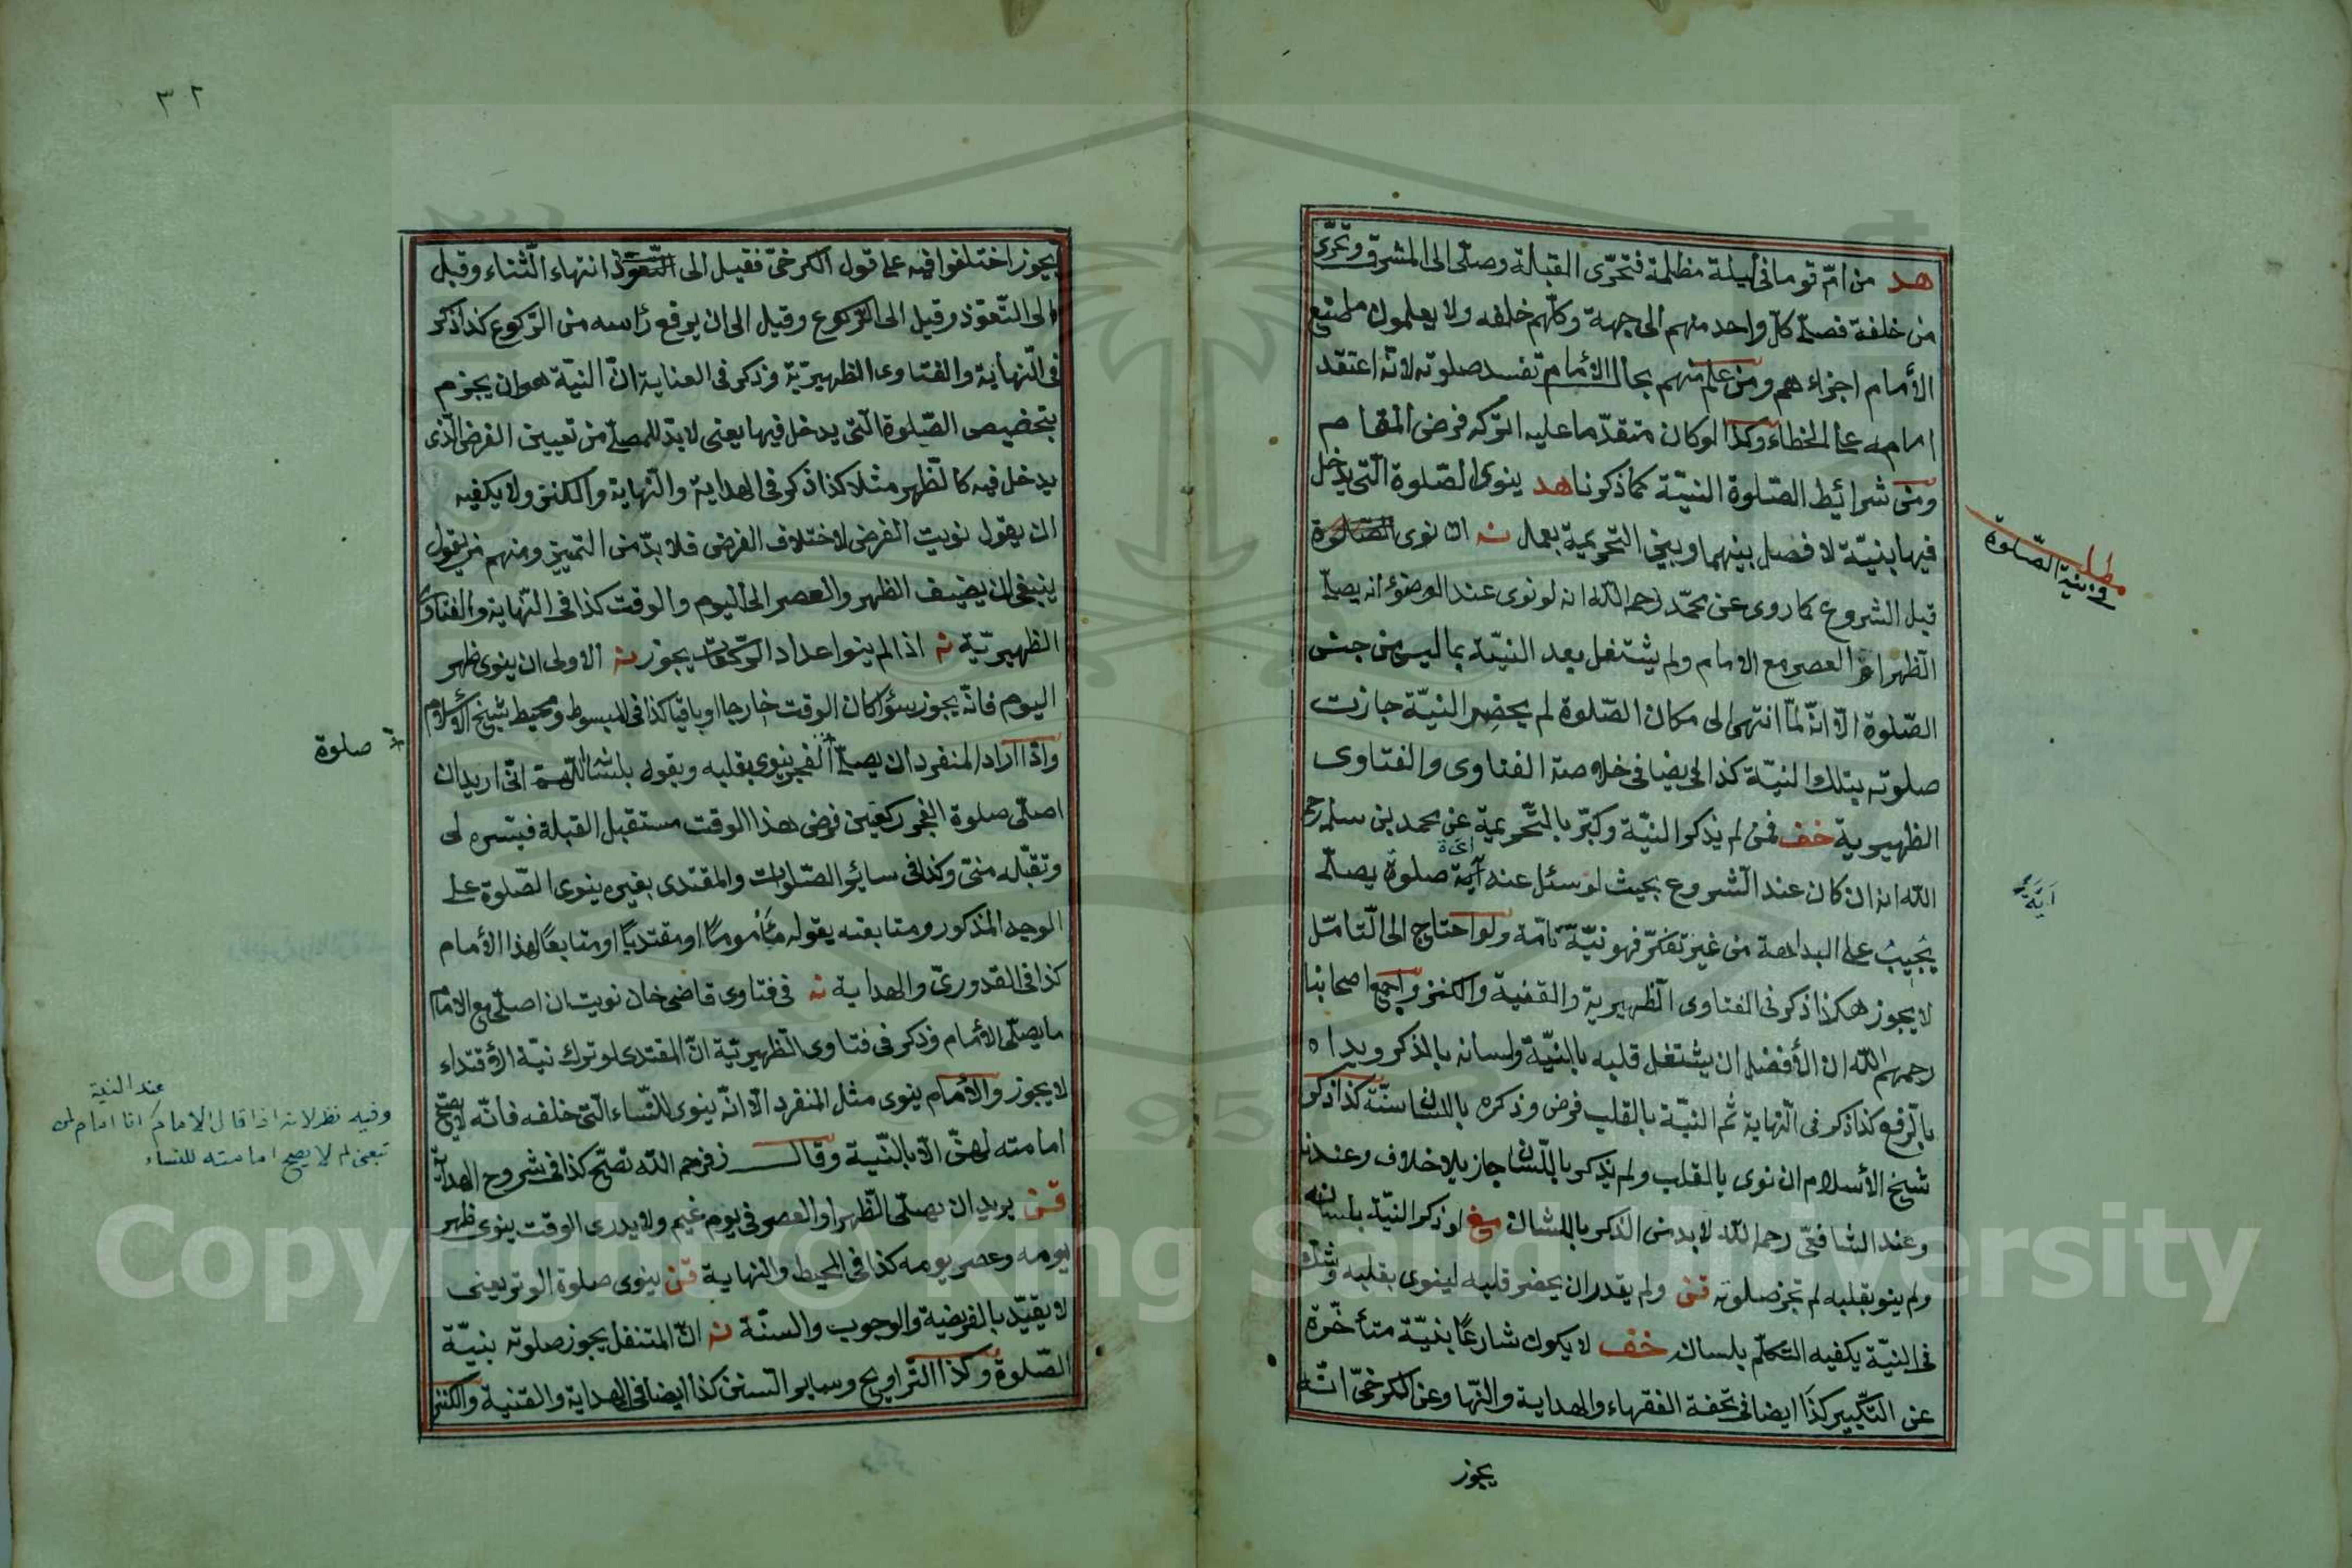 هد من امّ قوما فى ليلة مظلمة فتحرّى القبلة وصلّى الى المشرق وتحرّى
من خلفة فصلّے كلّ واحد منهم الى جهة وكلّهم خلفه ولا يعلمون ما صنع
الأمام اجزاء هم ومن علم منهم بحال الأمام تفسد صلوته لانّه اعتقد
امامه على الخطاء وكذا لو كان متقدّما عليه لتركه فرض المقام
ومن شرائط الصّلوة النيّة كما ذكرنا هد ينوى الصّلوة الّتى يدخل
فيها بنيّة لا فصل بينهما وبين التحريمة بعمل نه ان نوى الصّلوة
قبل الشروع كما روى عن محمّد رحمه اللّه انه لو نوى عند الوضوء انه يصلّے
الظهر او العصر مع الامام ولم يشتغل بعد النيّة بما ليس من جنس
الصّلوة الّا انّه لمّا انتهى الى مكان الصّلوة لم يحضر النيّة جازت
صلوته بتلك النيّة كذا ايضا فى خلاصة الفتاوى والفتاوى
الظهيرية خف فمن لم يذكر النيّة وكبّر بالتّحريمة عن محمد بن سلمه رحمه
اللّه انه ان كان عند الشروع بحيث لو سئل عنه أية صلوة يصلّے
يُجيبُ على البداهة من غير تفكّر فهو نيّة تامّة ولو احتاج الى التّأمّل
لا يجوز هكذا ذكر فى الفتاوى الظهيرية والقنية والكنز واجمع اصحابنا
رحمهم اللّه ان الأفضل ان يشتغل قلبه بالنيّة ولسانه بالذكر ويداه
بالرّفع كذا ذكر فى النّهاية ثم النيّة بالقلب فرض وذكره باللسان سنّة كذا ذكر
شيخ الأسلام ان نوى بالقلب ولم يذكر باللّسان جاز بلا خلاف وعندنا
وعند الشافعىّ رحمه اللّه لا بد من الذكر باللسان صغ لو ذكر النيّة بلسانه
ولم ينو بقلبه لم تجز صلوته قن ولم يقدر ان يحضر قلبه لينوى بقلبه وشك
فى النيّة يكفيه التكلّم بلسانه خف لا يكون شارعًا بنيّة متأخّرة
عن التكبير كذا ايضا فى تحفة الفقهاء والهداية والنّها وعن الكرخىّ انّه
يجوز
مطلب
فى نية الصّلوة
أيّة
٣٢
يجوز اختلفوا فيه على قول الكرخىّ فقيل الى التّعوّذ انتهاء الثّناء وقبل
الى التّعوّذ وقيل الى الرّكوع وقيل الى ان يرفع رأسه من الرّكوع كذا ذكر
فى النّهاية والفتاوى الظهيريّة وذكر فى العناية انّ النيّة هو ان يجزم
بتخصيص الصّلوة الّتى يدخل فيها يعنى لا بدّ للمصلّے من تعيين الفرض الّذى
يدخل فيه كالظّهر مثلا كذا ذكر فى الهداية والنّهاية والكنز ولا يكفيه
ان يقول نويت الفرض لاختلاف الفرض فلا بدّ من التميّز ومنهم من يقول
ينبغى ان يضيف الظهر والعصر الى اليوم والوقت كذا فى النّهاية والفتاوى
الظهيريّة نه اذا لم ينو اعداد الرّكعات يجوز نه الاولى ان ينوى ظهر
اليوم فانّه يجوز سوٓاء كان الوقت خارجا او باقيا كذا فى المبسوط ومحيط شيخ الأسلام
واذا اراد المنفرد ان يصلّے الفجر ينوى بقلبه ويقول بلسانه اللّهمّ انّى اريد ان
اصلّى صلوة الفجر ركعتين فرض هذا الوقت مستقبل القبلة فيسّره لى
وتقبّله منّى وكذا فى سائر الصّلوات والمقتدى بغيره ينوى الصّلوة على
الوجه المذكور ومتابعته يقول مأمومًا او مقتديًا او متابعًا لهذا الأمام
كذا فى القدورىّ والهداية نه فى فتاوى قاضى خان نويت ان اصلّى مع الامام
ما يصلّى الأمام وذكر فى فتاوى الظهيريّة انّ المقتدى لو ترك نيّة الأقتداء
لا يجوز والأمام ينوى مثل المنفرد الّا انّه ينوى للنّساء الّتى خلفه فانّه لا يصحّ
امامته لهنّ الّا بالنّيّة وقال زفر رحمه اللّه تصحّ كذا فى شروح الهداية
قن يريد ان يصلّى الظّهر او العصر فى يوم غيم ولا يدرى الوقت ينوى ظهر
يومه وعصر يومه كذا فى المحيط والنهاية قن ينوى صلوة الوتر يعنى
لا يقيّد بالفريضية والوجوب والسنّة نه انّ المتنفل يجوز صلوته بنيّة
الصّلوة وكذا التراويح وساير السنن كذا ايضا فى الهداية والقنية والكنز
صلوة
عند النية
وفيه نظر لانه اذا قال الامام انا امام لمن
تبعنى لم لا يصح امامته للنساء
Copyright © King Saud University
1957